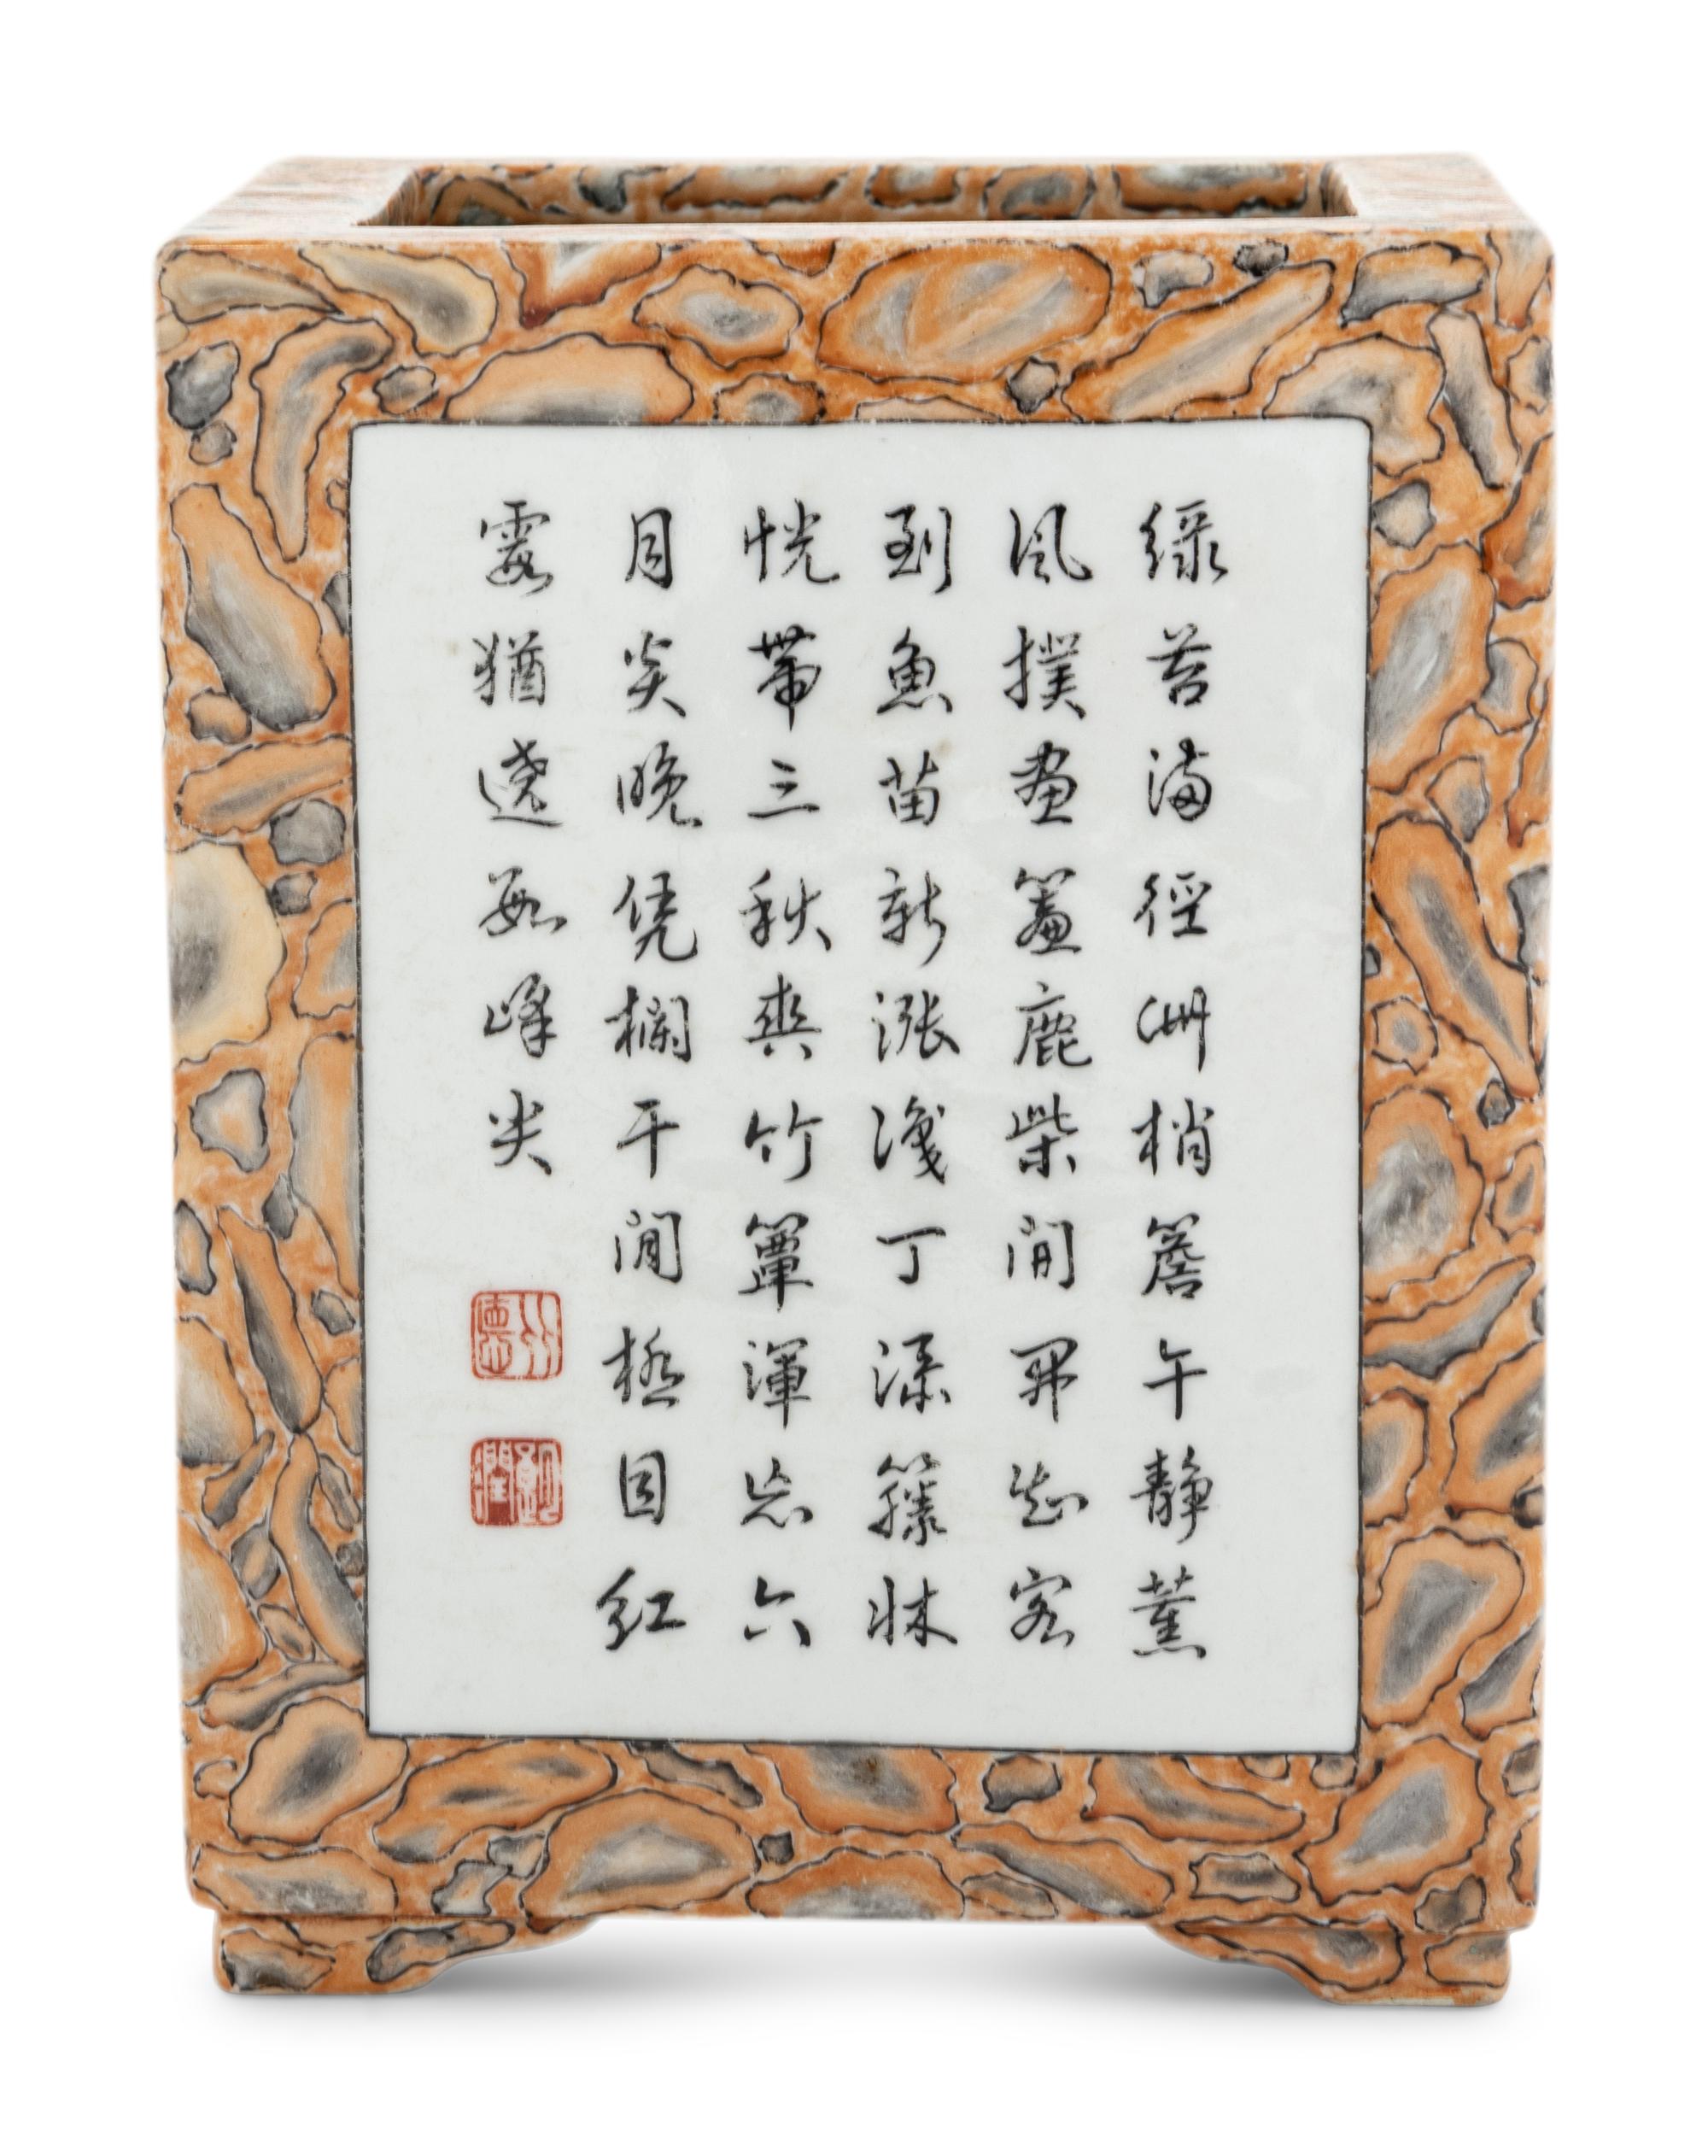 緑苔滿徑艸梢簷午静薰
風撲畫簾鹿柴閒開知客
到魚苗新漲淺丁添籐牀
恍帶三秋爽竹簟渾忘六
月炎晚凭欄干閒極目紅
霞猶遶數峰尖